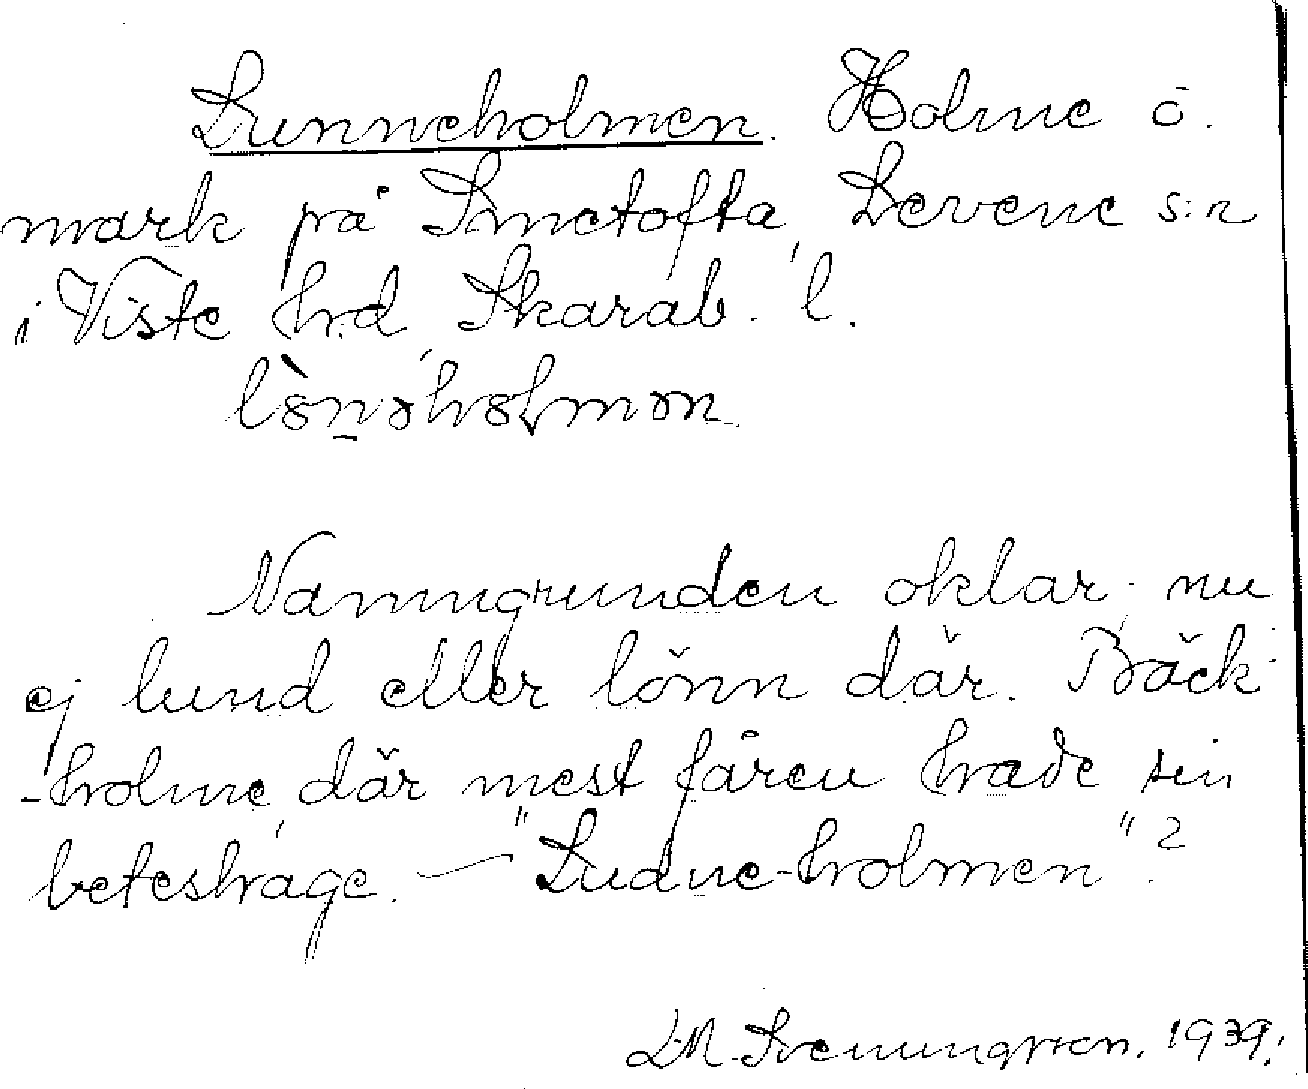 Lunneholmen. Holme ö.
mark på Smetofta, Levene s:n
i Viste hrd, Skarab. l.
Namngrunden oklar; nu
ej lund eller lönn där. Bäck-
-holme, där mest fåren hade sin
beteshage. — "Ludne-holmen"?
L.M. Svenungsson. 1939.